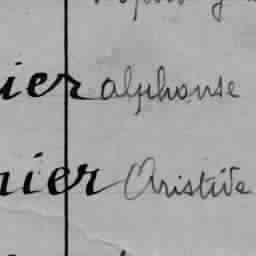 ier alphonse
nier Aristide